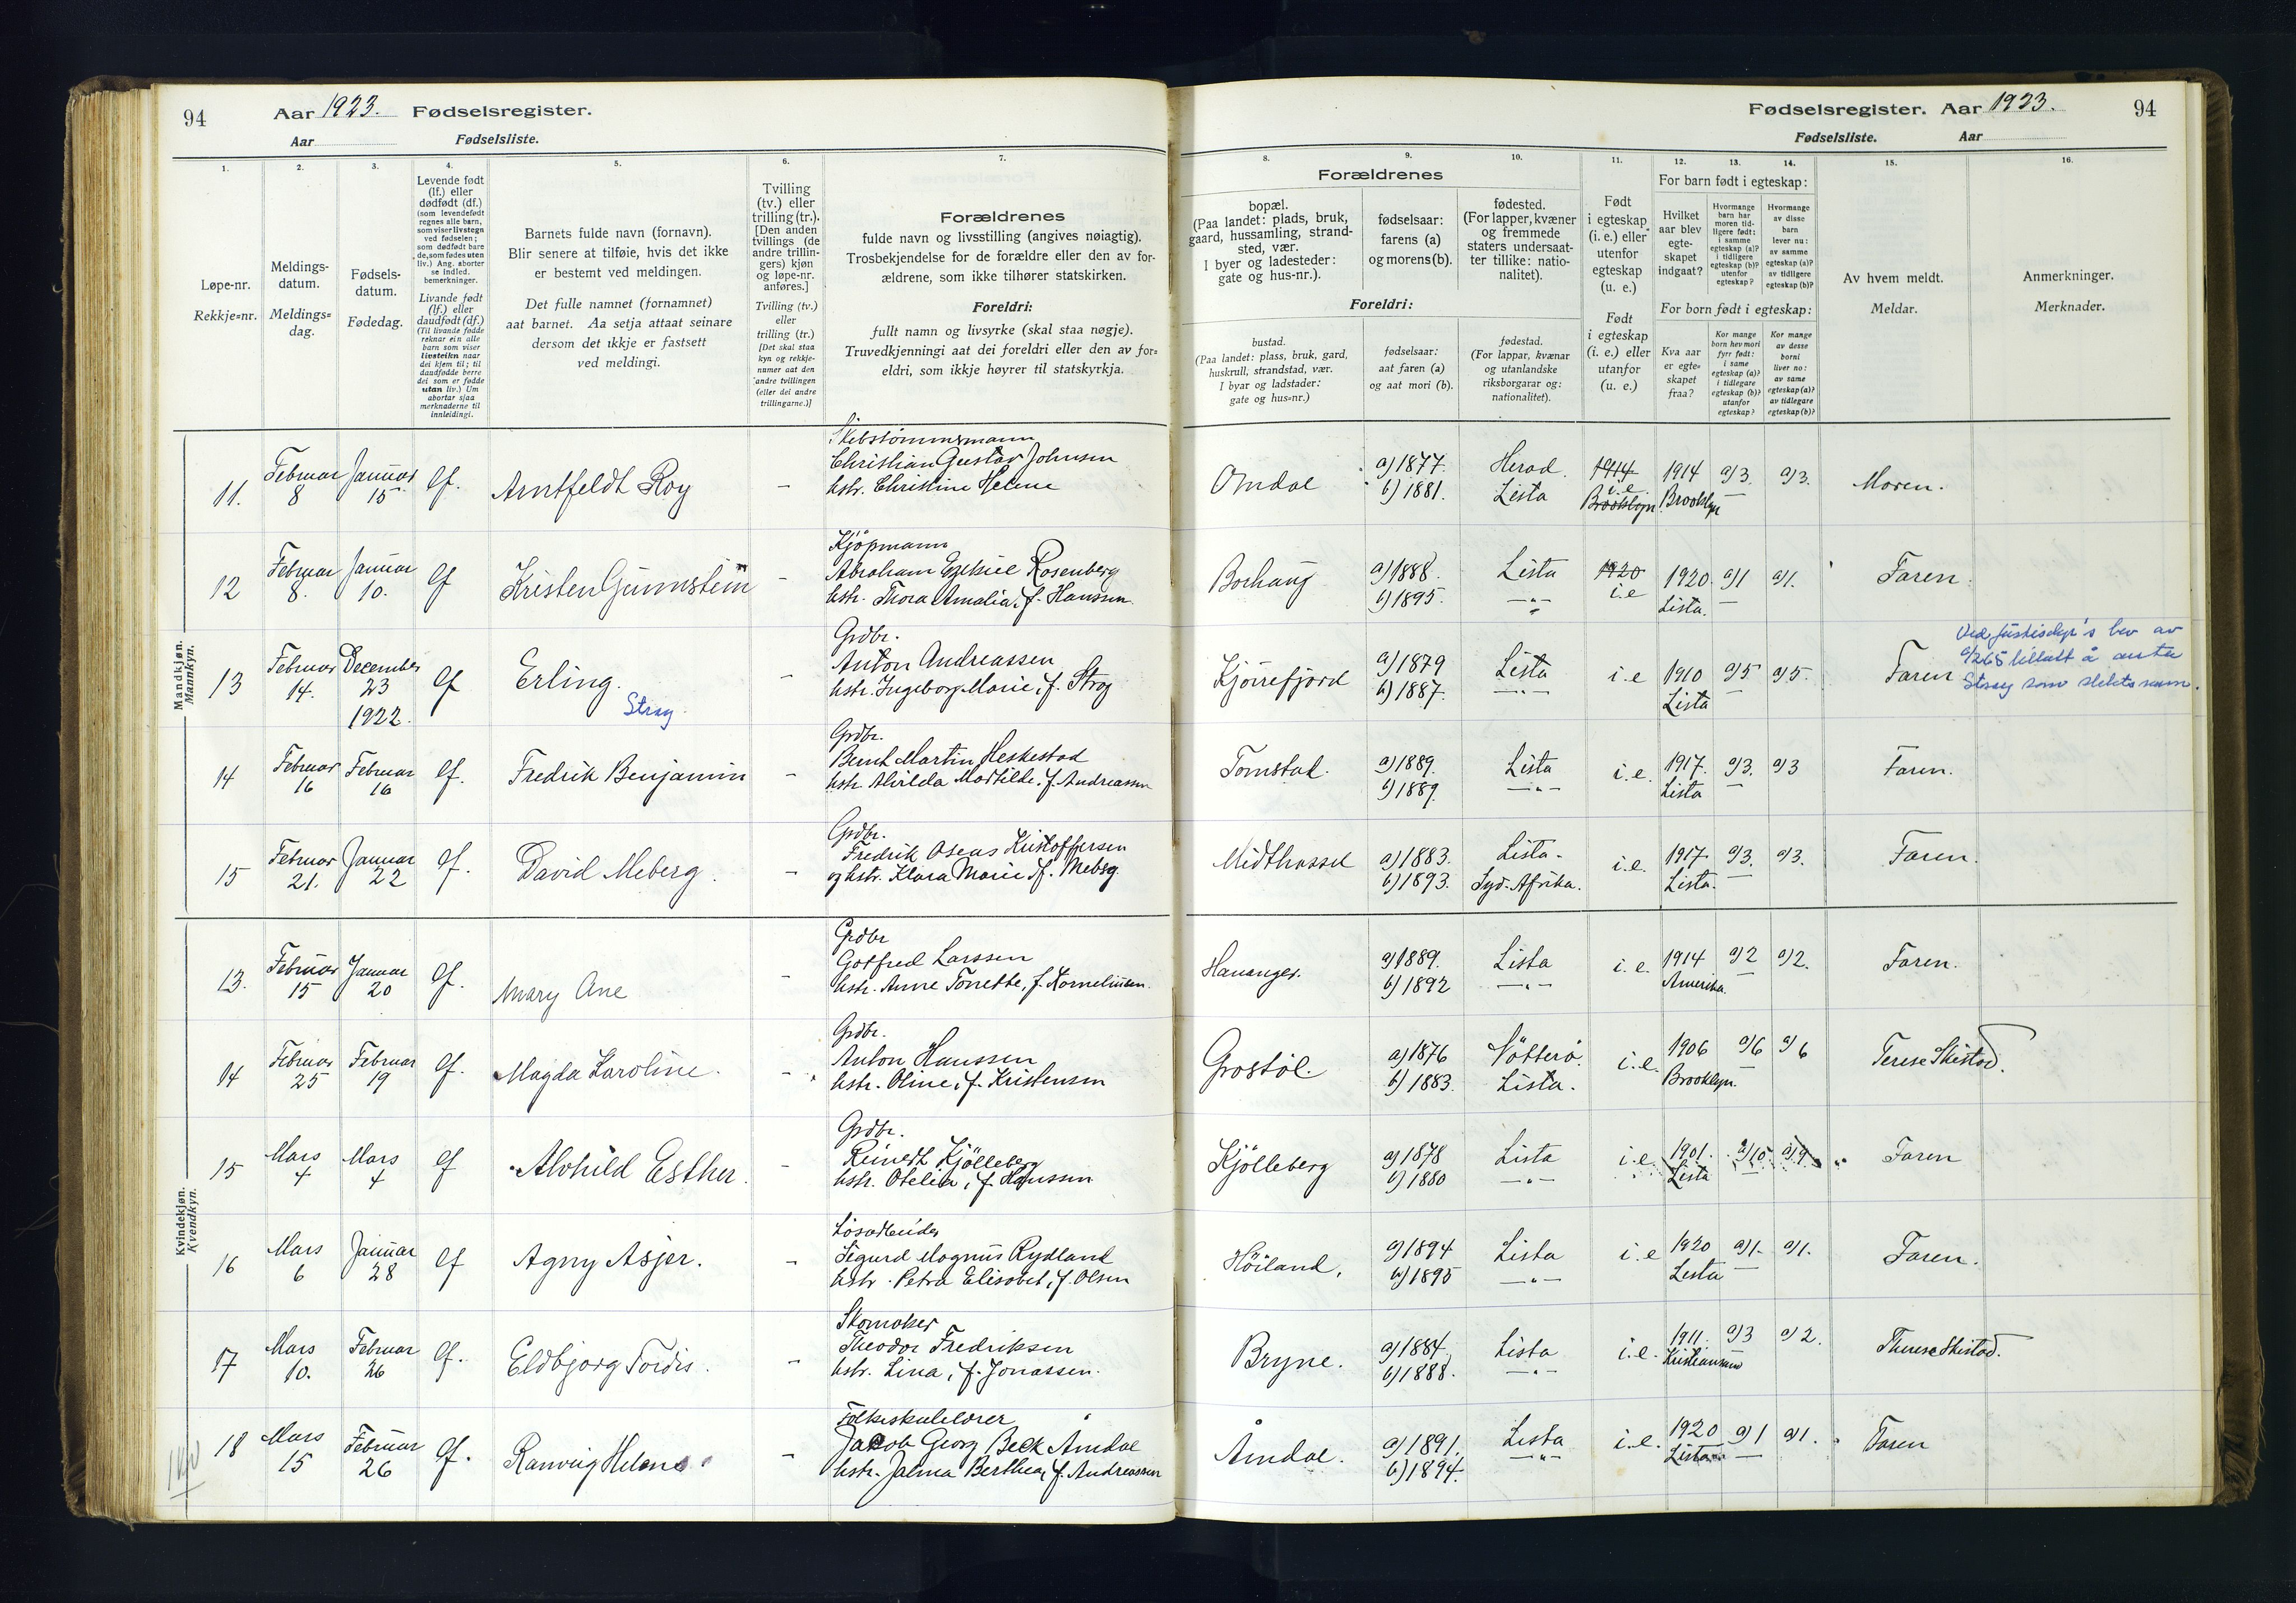 94 Aar 1923. Fødselsregister.
Aar Fødselsliste.
Fødselsregister. Aar 1923. 94
Fødselsliste. Aar
1. 2. 3. 4. 5. 6. 7.
Løpe-nr.
Rekkje=nr.
Meldings-
datum.
Meldings=
dag.
Fødsels-
datum.
Fødedag.
Levende født
(lf.) eller
dødfødt (df.)
(som levendefødt
regnes alle barn,
som viser livstegn
ved fødselen;
som dødfødt bare
de, som fødes uten
liv.) Ang. aborter
se indled.
bemerkninger.
Livande født
(lf.) eller
daudfødt (df.)
(Til livande fødde
reknar ein alle
barn som viser
livsteikn naar
dei kjem til; til
daudfødde berre
dei som er fødde
utan liv.) Um
abortar sjaa
merknaderne til
innleidingi.
Barnets fulde navn (fornavn).
Blir senere at tilføie, hvis det ikke
er bestemt ved meldingen.
Det fulle namnet (fornamnet)
aat barnet. Aa setja attaat seinare
dersom det ikkje er fastsett
ved meldingi.
Tvilling
(tv.) eller
trilling (tr.).
[Den anden
tvillings (de
andre trillin-
gers) kjøn
og løpe-nr.
anføres.]
Tvilling (tv.)
eller
trilling (tr.)
[Det skal staa
kyn og rekkje-
numer aat den
andre tvillingen
(eller dei andre
trillingarne.)]
Forældrenes
fulde navn og livsstilling (angives nøiagtig).
Trosbekjendelse for de forældre eller den av for-
ældrene, som ikke tilhører statskirken.
Foreldri:
fullt namn og livsyrke (skal staa nøgje).
Truvedkjenningi aat dei foreldri eller den av for=
eldri, som ikkje høyrer til statskyrkja.
8. 9. 10. 11. 12. 13. 14. 15. 16.
Forældrenes
bopæl.
(Paa landet: plads, bruk,
gaard, hussamling, strand-
sted, vær.
I byer og ladesteder:
gate og hus-nr.).
fødselsaar:
farens (a)
og morens (b).
fødested.
(For lapper, kvæner
og fremmede
staters undersaat-
ter tillike: natio-
nalitet).
Foreldri:
bustad.
(Paa landet: plass, bruk, gard,
huskrull, strandstad, vær.
I byar og ladstader:
gate og hus=nr.)
fødselsaar:
aat faren (a)
og aat mori (b).
fødestad.
(For lappar, kvænar
og utanlandske
riksborgarar og:
nationalitet).
Født
i egteskap
(i. e.) eller
utenfor
egteskap
(u. e.)
Født
i egteskap
(i. e.) eller
utanfor
(u. e.)
For barn født i egteskap:
Hvilket
aar blev
egte-
skapet
indgaat?
Hvormange
barn har
moren tid-
ligere født:
i samme
egteskap (a)?
i tidligere
egteskap (b)?
utenfor
egteskap?
Hvormange
av disse
barn
lever nu:
av samme
egteskap (a)?
av tidligere
egteskap (b)?
For born født i egteskap:
Kva aar
er egte=
skapet
fraa?
Kor mange
born hev mori
fyrr født:
i same
egteskap (a)?
i tidlegare
egteskap (b)?
utanfor
egteskap?
Kor mange
av desse
borni
liver no:
av same
egteskap (a)?
av tidlegare
egteskap (b)?
Av hvem meldt.
Meldar.
Anmerkninger.
Merknader.
Mandkjøn.
Mannkyn.
11. Februar 8 Januar 15 lf. Arntfeldt Roy —
Skibstømmermann
Christian Gustav Johnsen
hstr. Christine Helene
Omdal a) 1877. b) 1881. Herad. Lista 1914 i.e Brooklyn 1914 Brooklyn a/3 — a/3. Moren.
12 Februar 8. Januar 10. lf Kristen Gunnstein —
Kjøpmann
Abraham Ezekiel Rosenberg
hstr. Thora Amalia, f. Hanssen
Borhaug a) 1888. b) 1895. Lista —"— 1920 i.e 1920. Lista. a/1 — a/1. Faren.
13 Februar 14. December 23 1922. lf Erling. Stray —
Grdbr.
Anton Andreassen
hstr. Ingeborg Marie, f. Stray
Kjørrefjord a) 1879 b) 1887. Lista —"— i.e 1910 Lista a/5 — a/5. Faren
Ved Justisdep's bev av
tillatt å anta
Stray som slektsnavn.
14 Februar 16 Februar 16 lf. Fredrik Benjamin —
Grdbr.
Bernt Martin Heskestad
hstr. Alvilda Mathilde, f. Andreassen
Tomstad. a) 1889. b) 1889. Lista —"— i.e. 1917. Lista a/3. — a/3 Faren.
15 Februar 21. Januar 22 lf. David Meberg. —
Grdbr.
Fredrik Oseas Kristoffersen
og hstr. Klara Marie, f. Meberg
Midthassel a) 1883. b) 1893. Lista. Syd-Afrika. i.e. 1917. Lista. a/3. — a/3. Faren.
Kvindekjøn.
Kvendkyn.
13. Februar 15 Januar 20 lf. Mary Ane —
Grdbr
Gotfred Larssen
hstr. Anne Tonette, f. Korneliussen.
Hananger. a) 1889. b) 1892 Lista —"— i.e. 1914 Amerika. a/2 — a/2. Faren.
14 Februar 25 Februar 19 lf. Magda Karoline. —
Grdbr.
Anton Hanssen
hstr. Oline, f. Kristensen
Grostøl. a) 1876 b) 1883. Nøtterø Lista. i.e. 1906 Brooklyn. a/6 a/6 Terese Skistad.
15 Mars 4 Mars 4 lf Alvhild Esther. —
Grdbr.
Reinert Kjølleberg
hstr. Otelia, f. Hanssen
Kjølleberg a) 1878 b) 1880 Lista —"— i.e. 1901. Lista a/10 — a/9. Faren
16 Mars 6 Januar 28 lf Agny Asjer. —
Løsarbeider
Sigurd Magnus Rydland
hstr. Petra Elisabet, f. Olsen
Høiland. a) 1894 b) 1895 Lista —"— i.e 1920 Lista a/1. — a/1. Faren.
17 Mars 10. Februar 26 lf. Eldbjørg Tordis. —
Skomaker
Theodor Fredriksen
hstr. Lina, f. Jonassen.
Bryne. a) 1884. b) 1888. Lista —"— i.e. 1911. Kristiansand a/3 a/2. Therese Skistad.
18 Mars 15 Februar 26 lf. Ranveig Helene —
Folkeskulelærer
Jakob Georg Beck Åmdal
hstr. Jalma Berthea, f. Andreassen
Åmdal. a) 1891. b) 1894. Lista —"— i.e. 1920 Lista a/1 — a/1. Faren